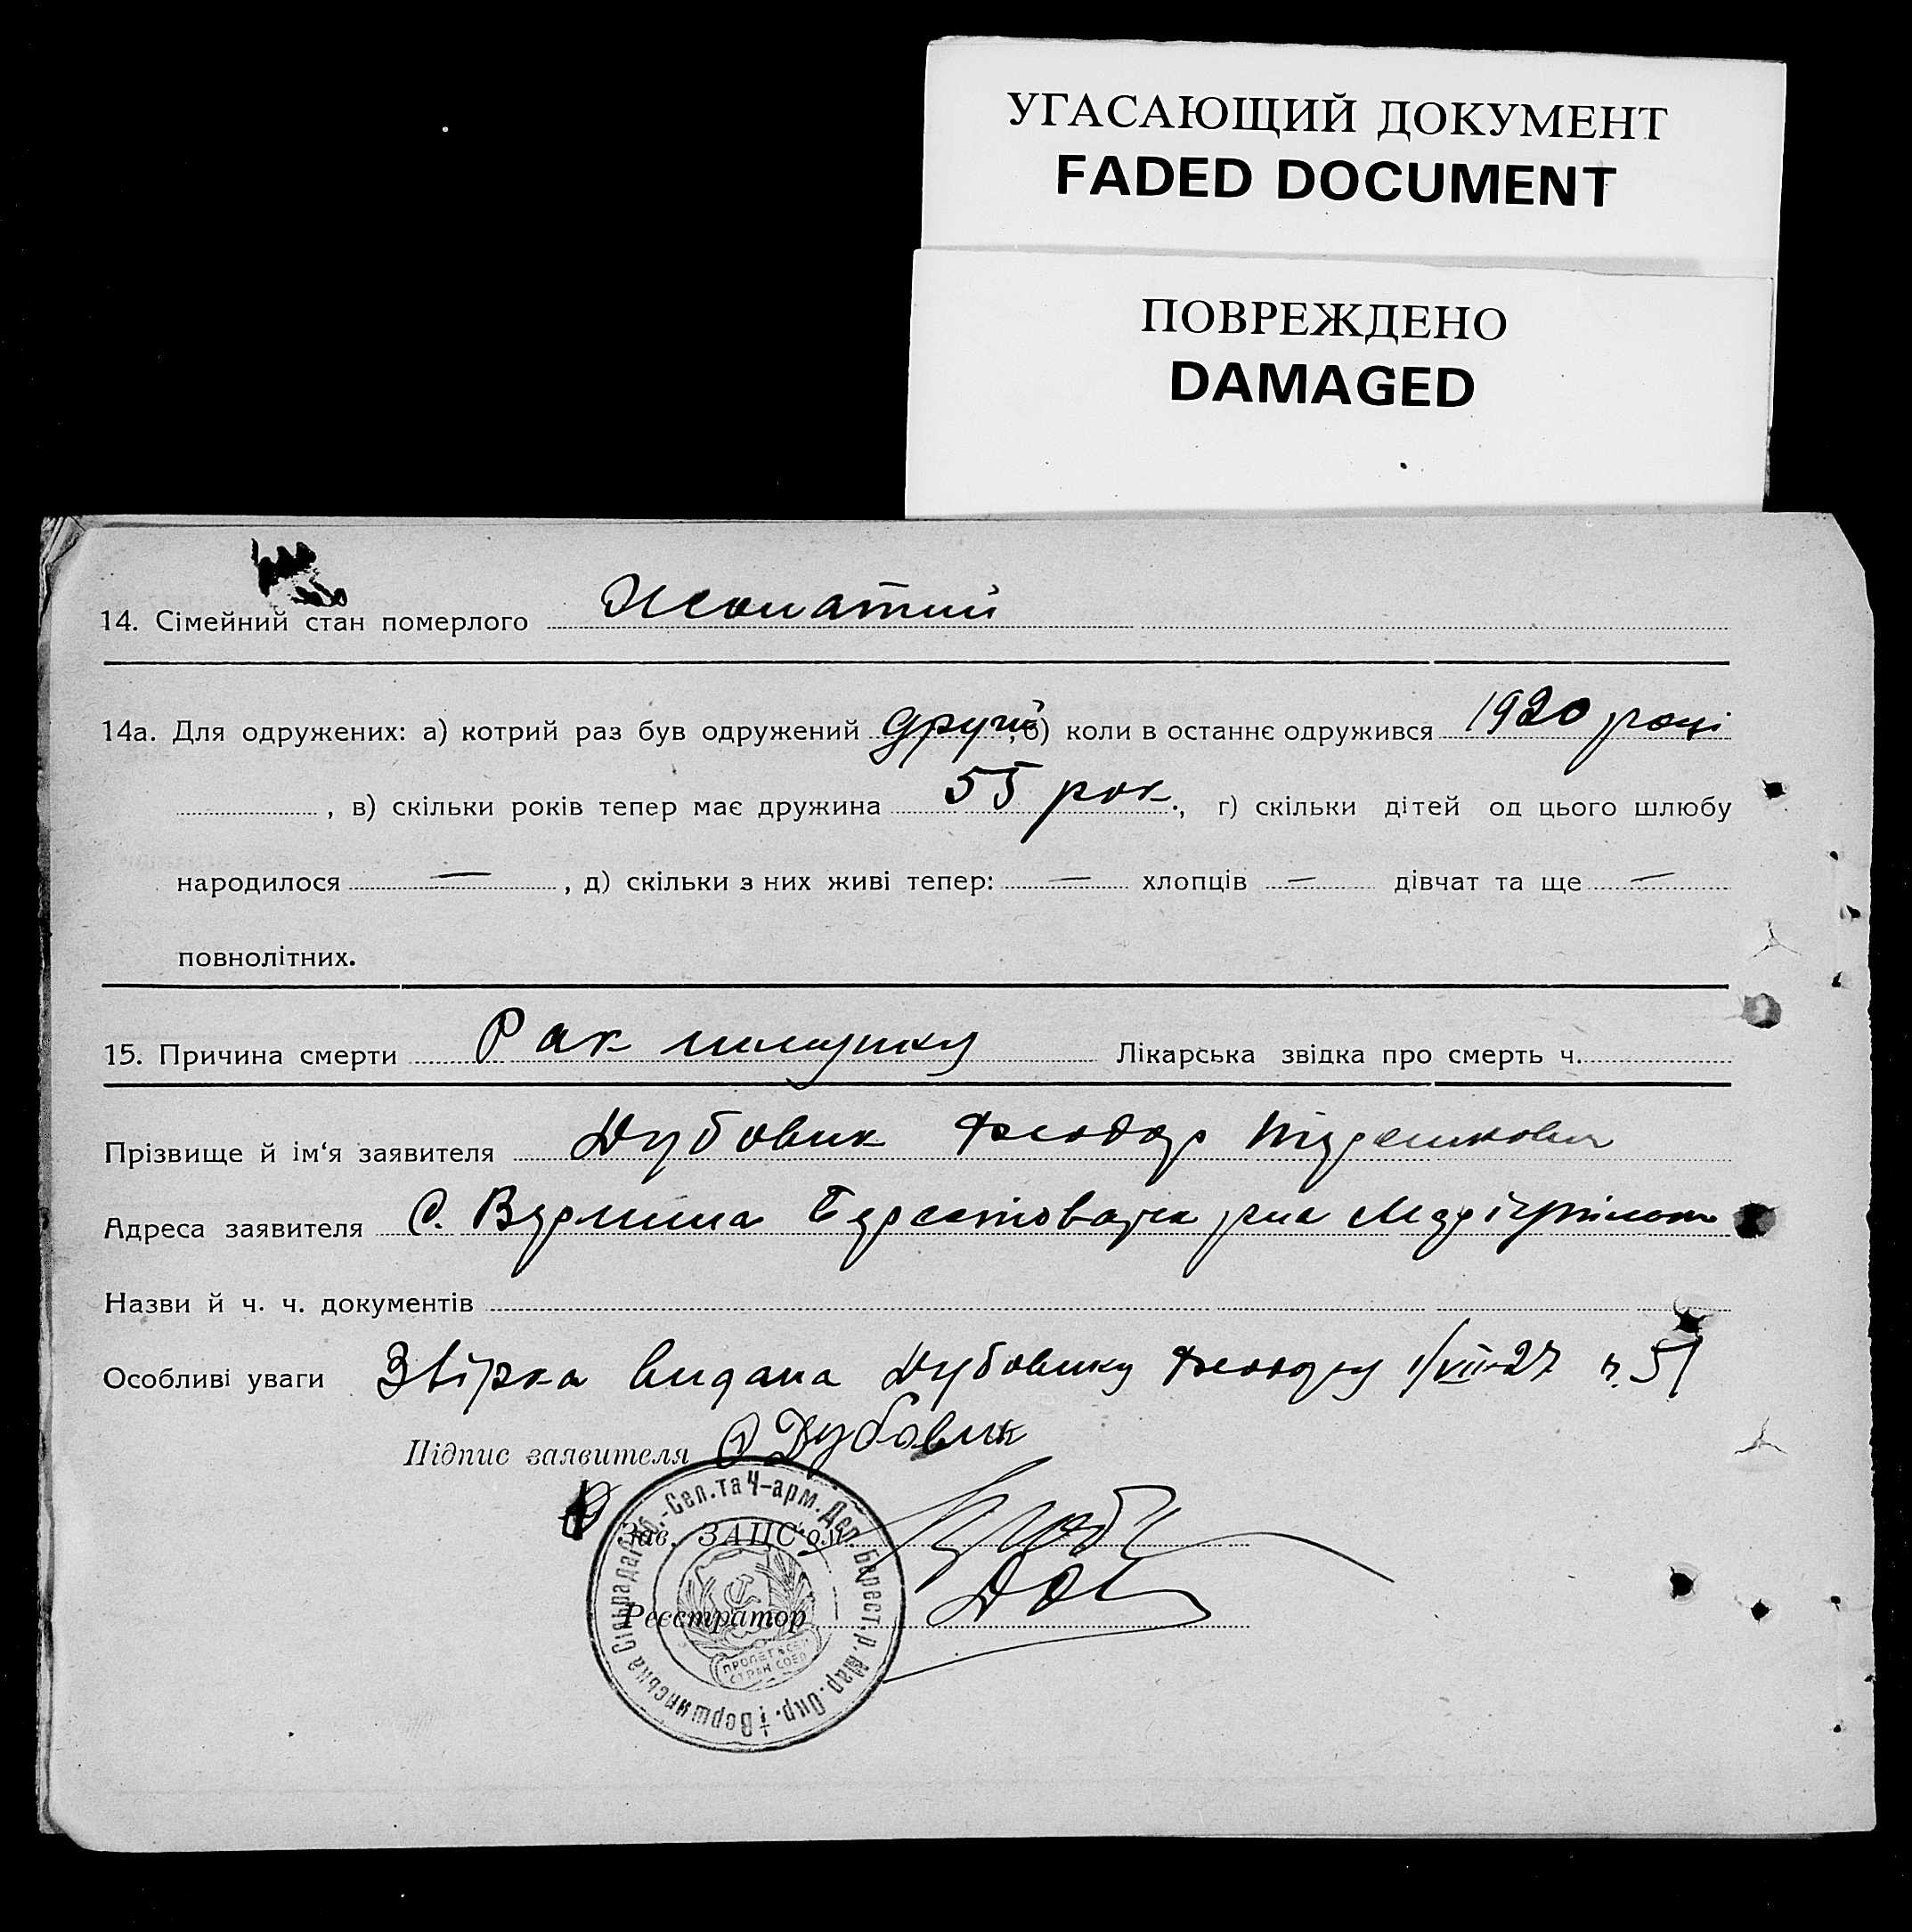 УГАСАЮЩИЙ ДОКУМЕНТ
FADED DOCUMENT
ПОВРЕЖДЕНО
DAMAGED
14. Сімейний стан померлого Жонатий
14а. Для одружених: а) котрий раз був одружений другий, б) коли в останнє одружився 1920 році
, в) скільки років тепер має дружина 55 рок., г) скільки дітей од цього шлюбу
народилося — , д) скільки з них живі тепер: — хлопців — дівчат та ще —
повнолітних.
15. Причина смерти Рак Лікарська звідка про смерть ч.
Прізвище й ім'я заявителя Дубовик Феодор
Адреса заявителя С.
Назви й ч. ч. документів
Особливі уваги видана Дубовику Феодру 1/VII-27 51
Підпис заявителя Дубовик
Зав. ЗАЦС'ом
Реєстратор
Сільрада Роб.-Сел. та Ч-арм. Деп. Берест. р. Мар. Окр.
ПРОЛЕТ ВСЕХ
СТРАН СОЕД